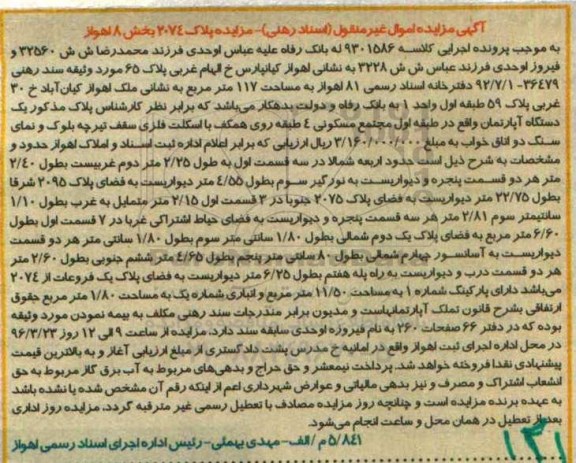 آگهی مزایده اموال غیرمنقول (اسناد رهنی)- مزایده پلاک ۲۰۷۴ بخش ۸ اهواز
به موجب پرونده اجرایی کلاسه ۹۳۰۱۵۸۶ له بانک رفاه علیه عباس اوحدی فرزند محمدرضا ش ش ۳۲۵۶۰ و
فیروز اوحدی فرزند عباس ش ش ۳۲۲۸ به نشانی اهواز کیانپارس خ الهام غربی پلاک ۶۵ مورد وثیقه سند رهنی
۳۶۴۷۹- ۹۲/۷/۱ دفترخانه اسناد رسمی ۸۱ اهواز به مساحت ۱۱۷ متر مربع به نشانی ملک اهواز کیان‌آباد خ ۳۰
غربی پلاک ۵۹ طبقه اول واحد ۱ به بانک رفاه و دولت بدهکار می‌باشد که برابر نظر کارشناس پلاک مذکور یک
دستگاه آپارتمان واقع در طبقه اول مجتمع مسکونی ۴ طبقه روی همکف با اسکلت فلزی سقف تیرچه بلوک و نمای
سنگ دو اتاق خواب به مبلغ ۳/۱۶۰/۰۰۰/۰۰۰ ریال ارزیابی که برابر اعلام اداره ثبت اسناد و املاک اهواز حدود و
مشخصات به شرح ذیل است حدود اربعه شمالا در سه قسمت اول به طول ۲/۲۵ متر دوم غربیست بطول ۲/۴۰
متر هر دو قسمت پنجره و دیواریست به نورگیر سوم بطول ۴/۵۵ متر دیواریست به فضای پلاک ۲۰۹۵ شرقا
بطول ۲۲/۷۵ متر دیواریست به فضای پلاک ۲۰۷۵ جنوبا در ۳ قسمت اول ۲/۱۵ متر متمایل به غرب بطول ۱/۱۰
سانتیمتر سوم ۲/۸۱ متر هر سه قسمت پنجره و دیواریست به فضای حیاط اشتراکی غربا در ۷ قسمت اول بطول
۶/۶۰ متر مربع به فضای پلاک یک دوم شمالی بطول ۱/۸۰ سانتی متر سوم بطول ۱/۸۰ سانتی متر هر دو قسمت
دیواریست به آسانسور چهارم شمالی بطول ۸۰ سانتی متر پنجم بطول ۴/۶۵ متر ششم جنوبی بطول ۲/۶۰ متر
هر دو قسمت درب و دیواریست به راه پله هفتم بطول ۶/۲۵ متر دیواریست به فضای پلاک یک فروعات از ۲۰۷۴
می‌باشد دارای پارکینگ شماره ۱ به مساحت ۱۱/۵۰ متر مربع و انباری شماره یک به مساحت ۱/۸۰ متر مربع حقوق
ارتفاقی بشرح قانون تملک آپارتمانهاست و مدیون برابر مندرجات سند رهنی مکلف به بیمه نمودن مورد وثیقه
بوده که در دفتر ۶۶ صفحات ۲۶۰ به نام فیروزه اوحدی سابقه سند دارد. مزایده از ساعت ۹ الی ۱۲ روز ۹۶/۳/۲۳
در محل اداره اجرای ثبت اهواز واقع در امانیه خ مدرس پشت دادگستری از مبلغ ارزیابی آغاز و به بالاترین قیمت
پیشنهادی نقدا فروخته خواهد شد. پرداخت نیمعشر و حق حراج و بدهی‌های مربوط به آب برق گاز مربوط به حق
انشعاب اشتراک و مصرف و نیز بدهی مالیاتی و عوارض شهرداری اعم از اینکه رقم آن مشخص شده یا نشده باشد
به عهده برنده مزایده است و چنانچه روز مزایده مصادف با تعطیل رسمی غیر مترقبه گردد، مزایده روز اداری
بعد از تعطیل در همان محل و ساعت انجام می‌شود.
۵/۸۴۱ م/الف- مهدی بهملی- رئیس اداره اجرای اسناد رسمی اهواز